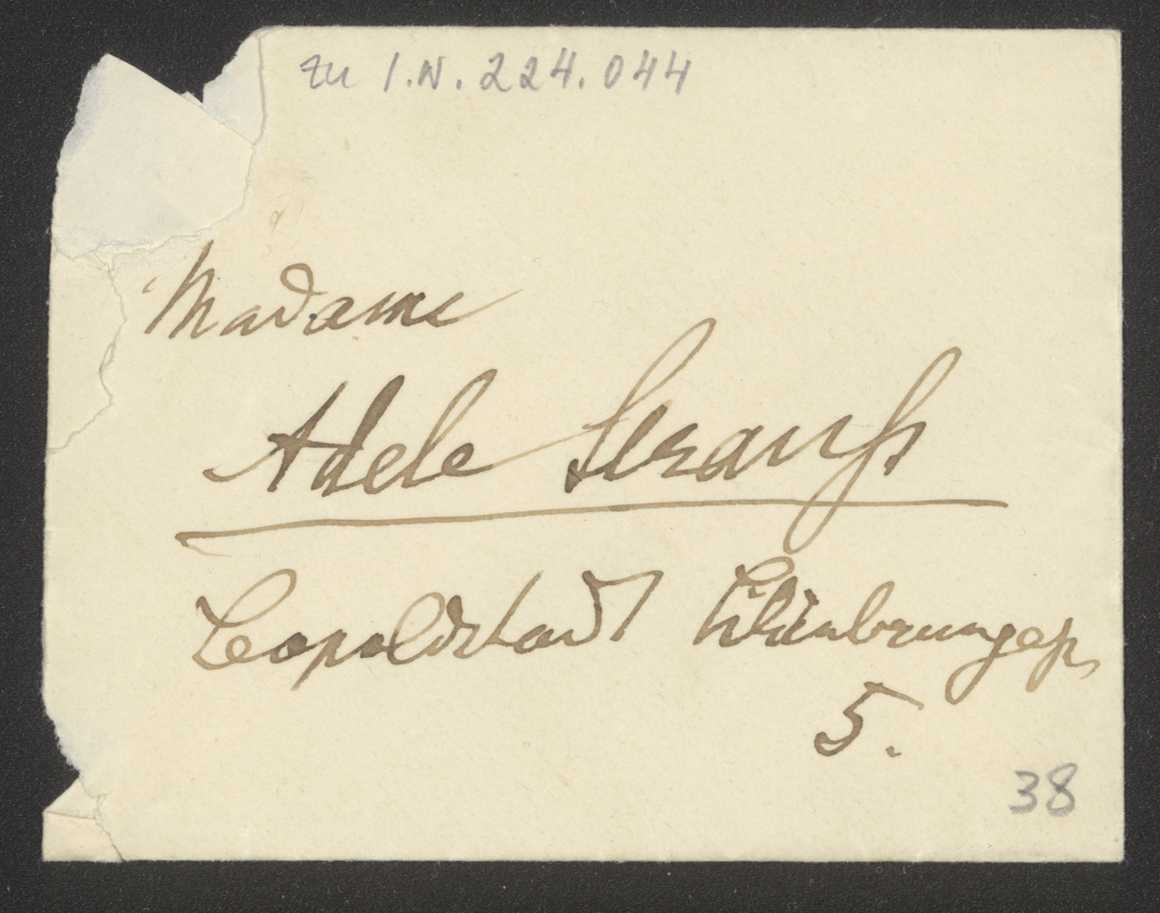 zu I.N. 224.044
Madame
Adele Strauß
Leopoldstadt Lilienbrungaße
5.
38